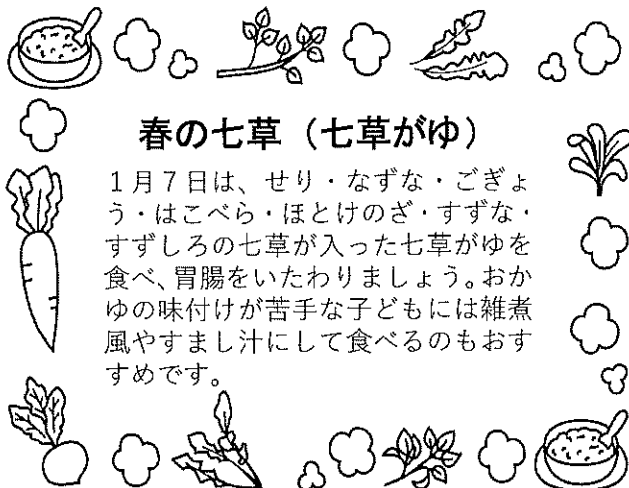 春の七草（七草がゆ）
1月7日は、せり・なずな・ごぎょ
う・はこべら・ほとけのざ・すずな・
すずしろの七草が入った七草がゆを
食べ、胃腸をいたわりましょう。おか
ゆの味付けが苦手な子どもには雑煮
風やすまし汁にして食べるのもおす
すめです。